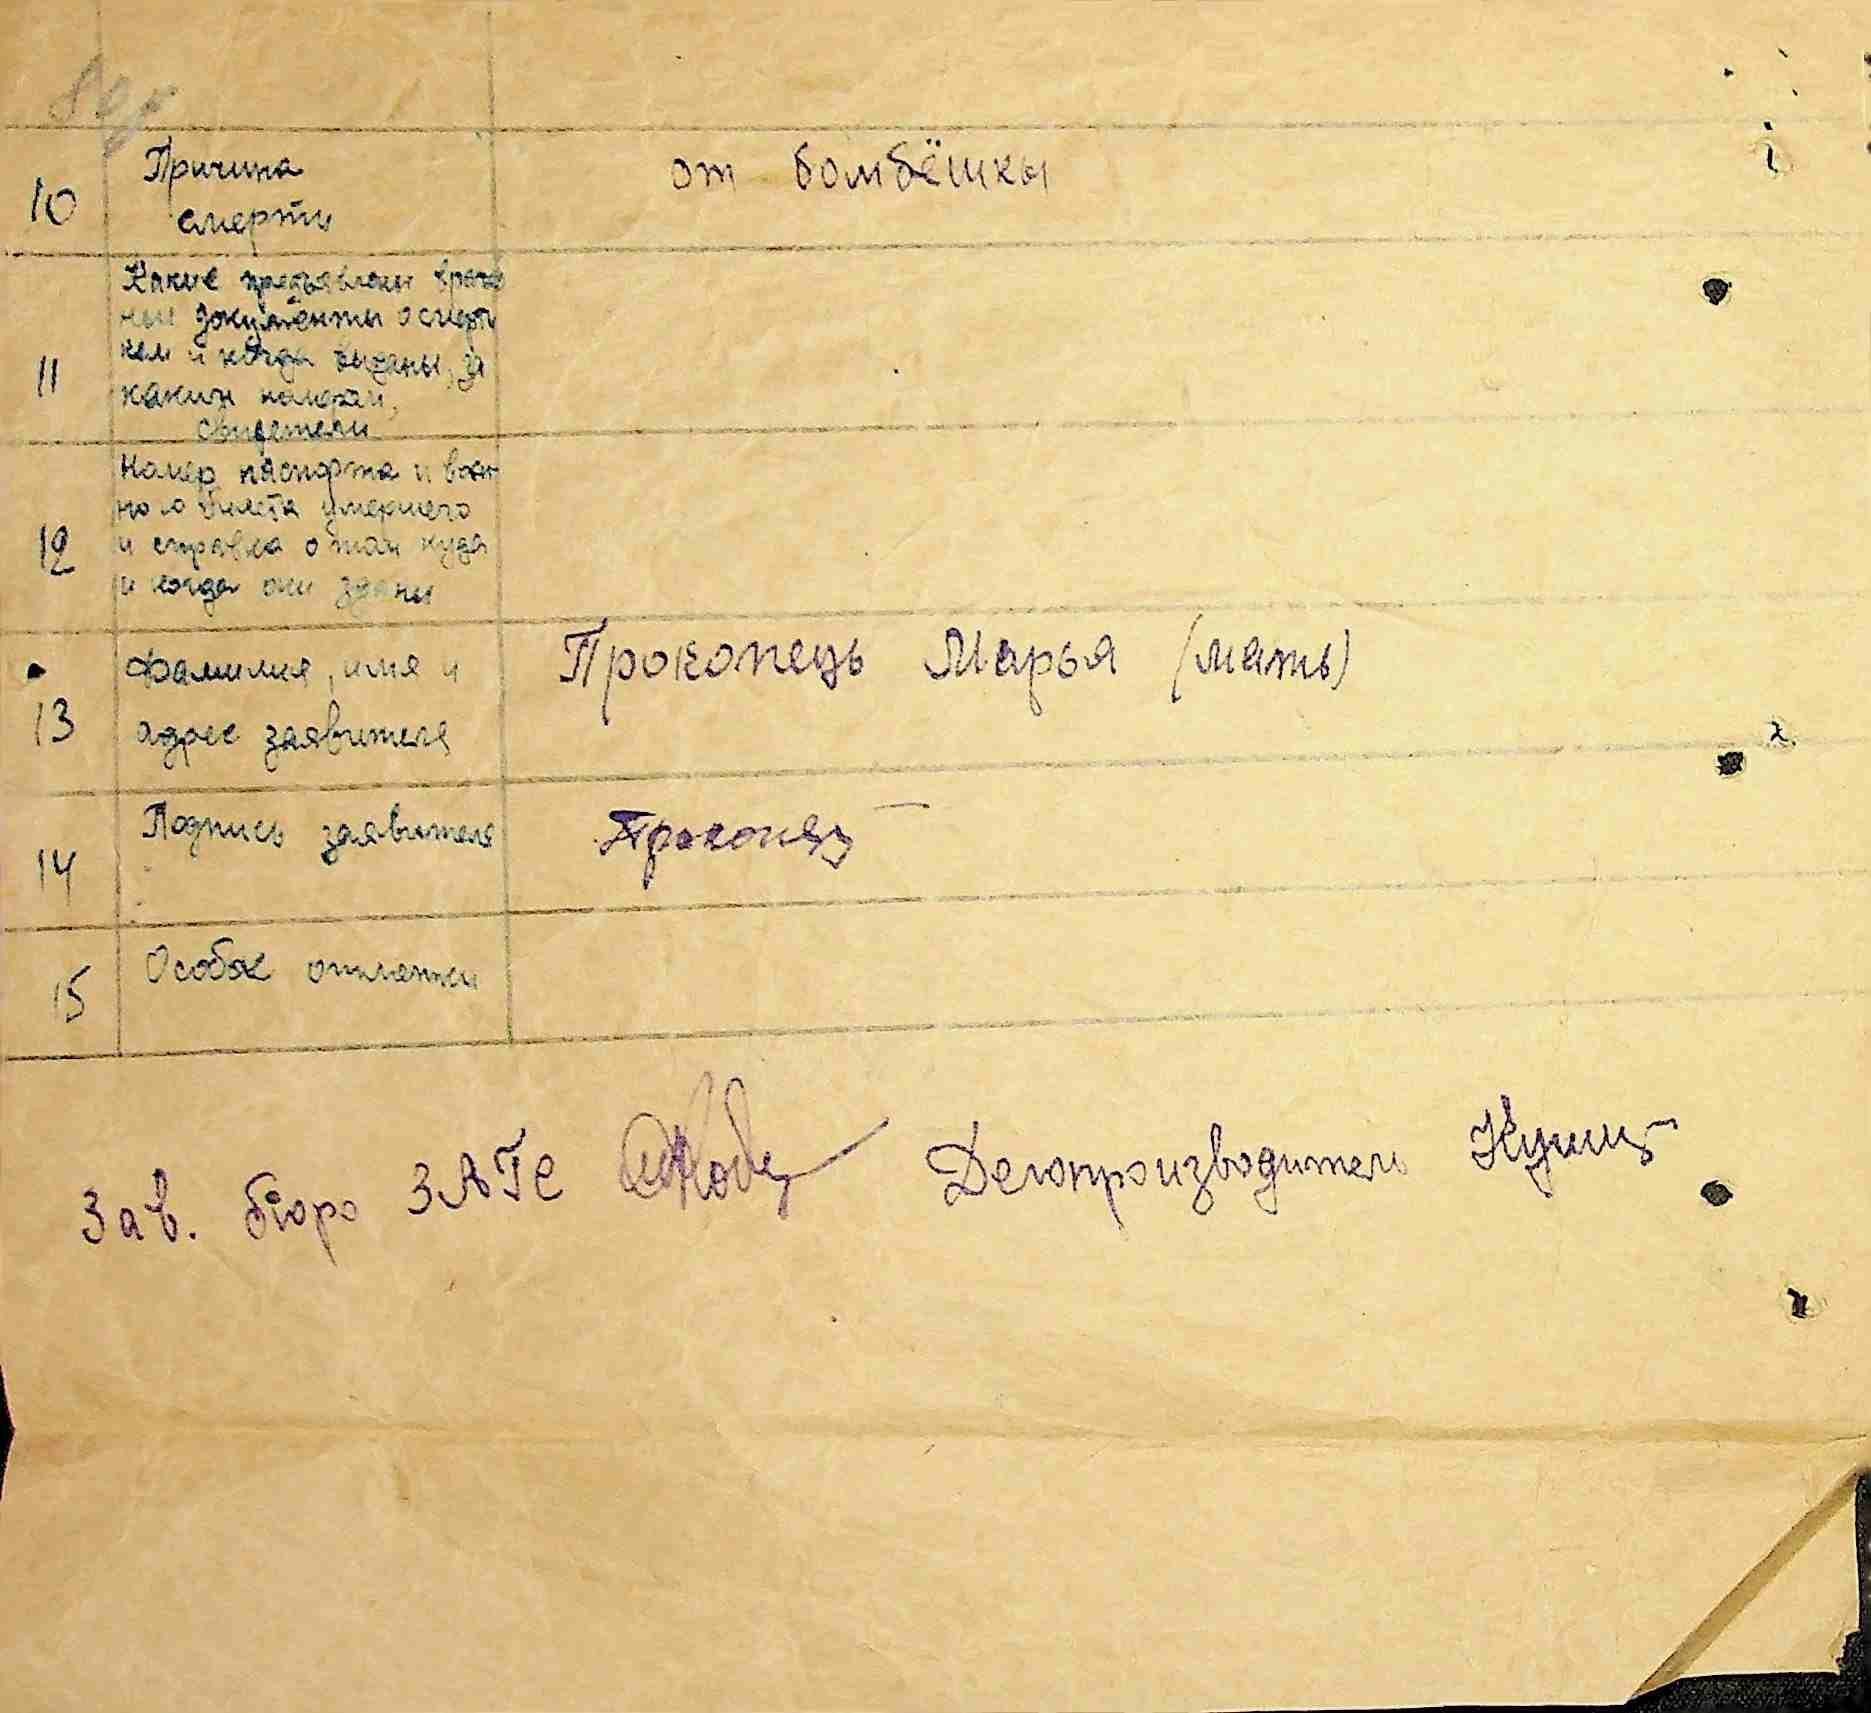 10 Причина от бомбёшкы
смерти
Какие предъявлены врачеб
ные документы о смерти
кем и когда выданы, за
11 каким номером,
свидетели
Номер паспорта и воен
ного билета умершего
12 и справка о том куда
и когда они зданы
Фамилия, имя и Прокопець Марья (мать)
13 адрес заявителя
Подпись заявителя Прокопец
14
15 Особые отметки
Зав. бюро ЗАГС Делопроизводитель